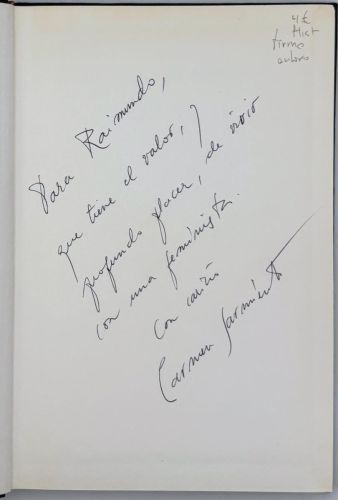 Para Raimundo,
que tiene el valor, y
profundo placer, de vivir
con una feminista.
con cariño
Carmen Sarmiento
4€
Hist
firma